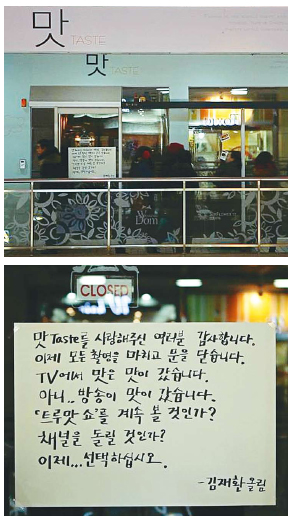 맛
TASTE
맛
TASTE
Dom
CLOSED
맛 Taste를 사랑해주신 여러분 감사합니다.
이제 모든 촬영을 마치고 문을 닫습니다.
TV에서 맛은 맛이 갔습니다.
아니.. 방송이 맛이 갔습니다.
'트루맛 쇼'를 계속 볼 것인가?
채널을 돌릴 것인가?
이제... 선택하십시오.
- 김재환 올림